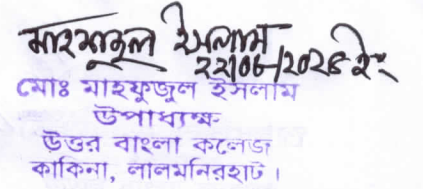 মাহফুজুল ইসলাম
২২/০৮/২০২৪ ইং
মোঃ মাহফুজুল ইসলাম
উপাধ্যক্ষ
উত্তর বাংলা কলেজ
কাকিনা, লালমনিরহাট।